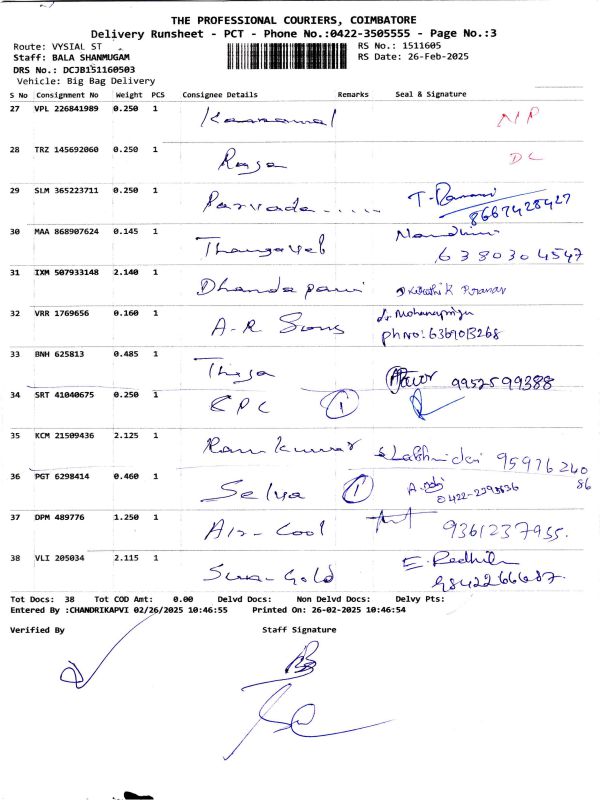 THE PROFESSIONAL COURIERS, COIMBATORE
Delivery Runsheet - PCT - Phone No.:0422-3505555 - Page No.:3
Route: VYSIAL ST RS No.: 1511605
Staff: BALA SHANMUGAM RS Date: 26-Feb-2025
DRS No.: DCJB151160503
Vehicle: Big Bag Delivery
S No Consignment No Weight PCS Consignee Details Remarks Seal & Signature
27 VPL 226841989 0.250 1 NP
28 TRZ 145692060 0.250 1 Raja DC
29 SLM 365223711 0.250 1 8667428427
30 MAA 868907624 0.145 1 Thangavel Nandhini 6380304547
31 IXM 507933148 2.140 1 Dhandapani
32 VRR 1769656 0.160 1 A-R Sons
ph No:
33 BNH 625813 0.485 1 9952599388
34 SRT 41040675 0.250 1 KPC 1
35 KCM 21509436 2.125 1 Ram Kumar 9597624086
36 PGT 6298414 0.460 1 Selva 1
37 DPM 489776 1.250 1 Air-Cool 9361237955.
38 VLI 205034 2.115 1 9842266687.
Tot Docs: 38 Tot COD Amt: 0.00 Delvd Docs: Non Delvd Docs: Delvy Pts:
Entered By :CHANDRIKAPVI 02/26/2025 10:46:55 Printed On: 26-02-2025 10:46:54
Verified By Staff Signature